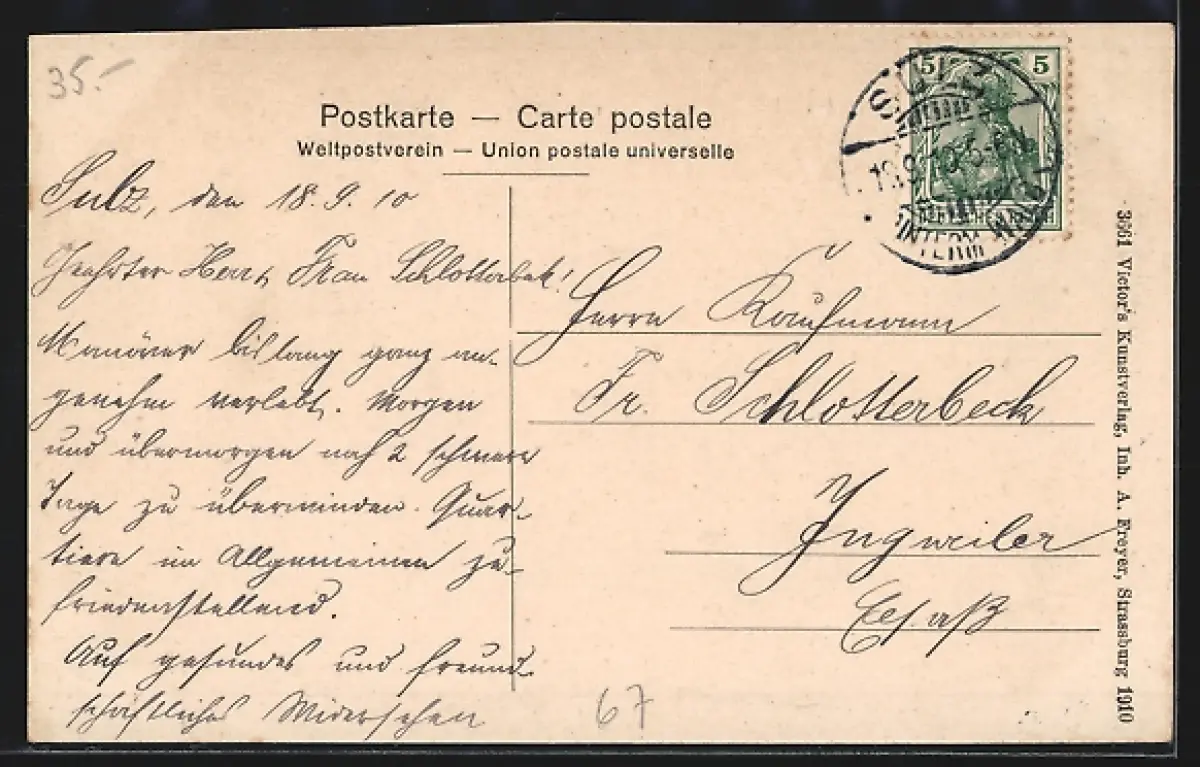 35.-
Postkarte — Carte postale
Weltpostverein — Union postale universelle
Sulz, den 18.9.10
Geehrter Herr, Frau Schlotterbek!
Manöver bislang ganz an-
genehm verlebt. Morgen
und übermorgen noch 2 schwere
Tage zu überwinden. Quar-
tiere im Allgemeinen zu-
friedenstellend.
Auf gesundes und freund-
schaftliches Wiedersehen
Herrn Kaufmann
Fr. Schlotterbeck
Ingweiler
Elsaß
67
5 5
DEUTSCHES REICH
SULZ
(UNTERM WALD)
3661 Victor's Kunstverlag, Inh. A. Freyer, Strassburg 1910